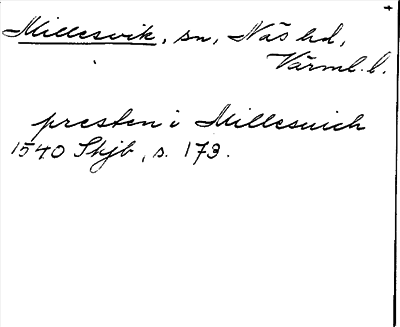 Millesvik, sn, Näs hd,
Värml. l.
presten i Millesuich
1540 Skjb, s. 173.